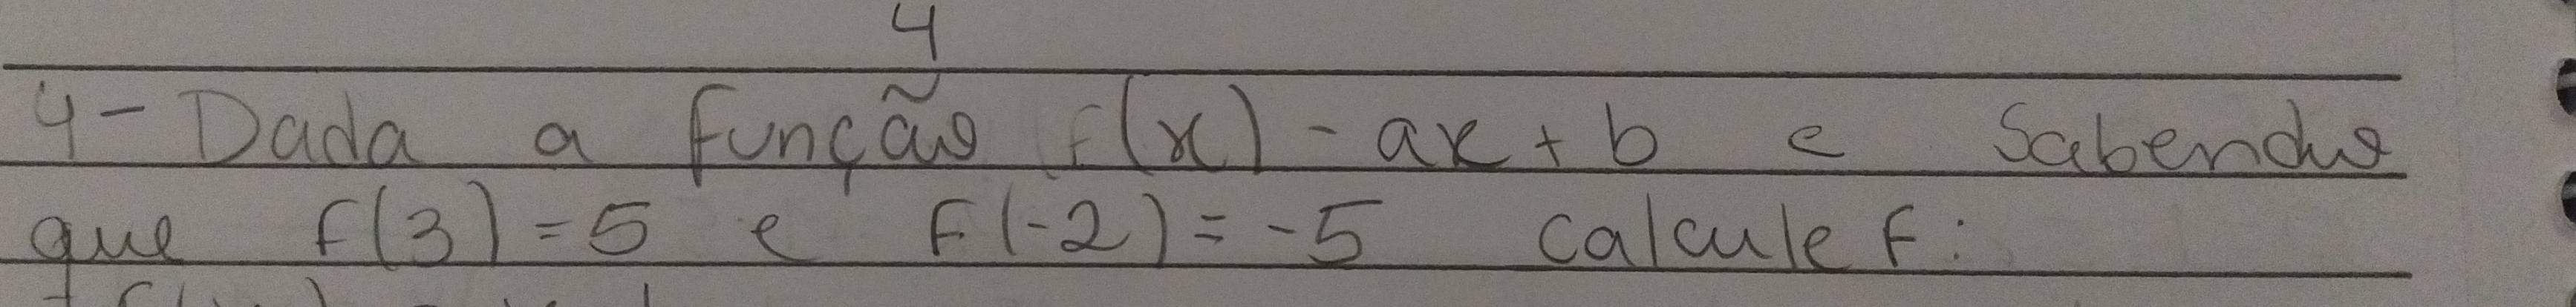 4
4- Dada a função f(x) - ax + b e Sabendo
que f(3) = 5 e F(-2) = -5 calcule F: